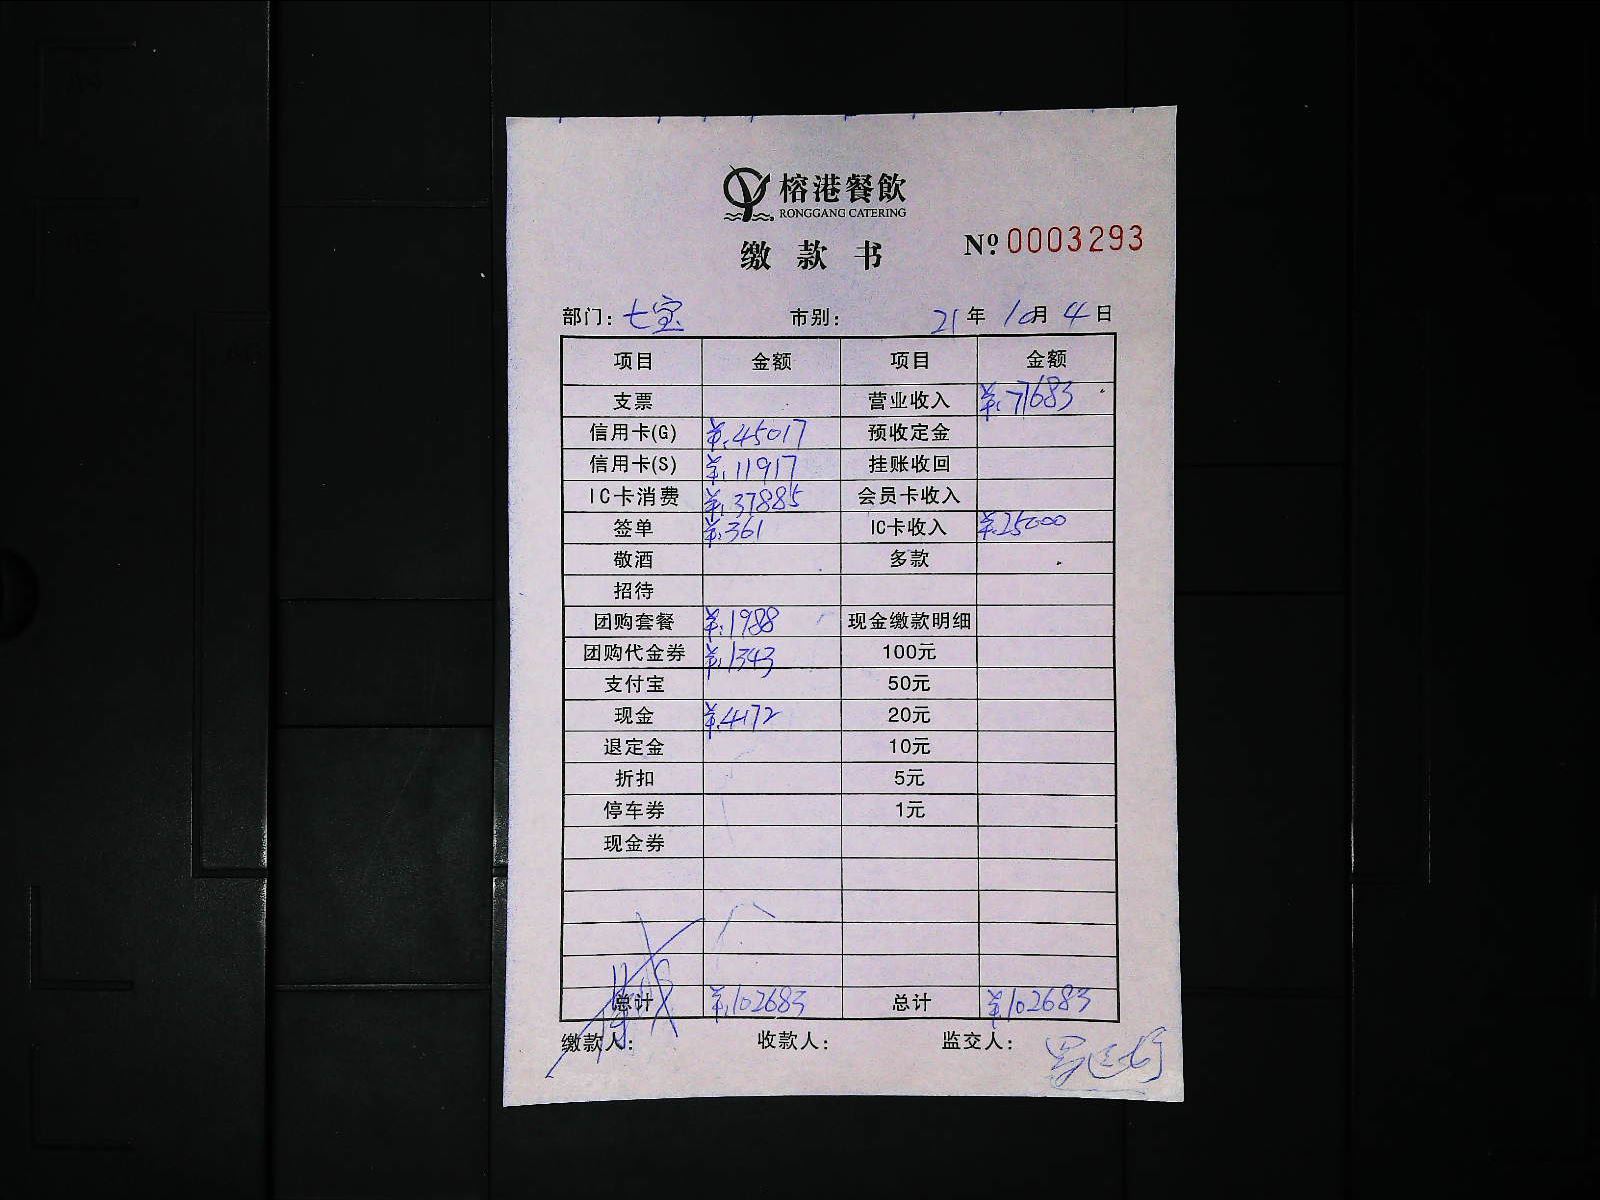 榕港餐飲
RONGGANG CATERING
缴款书 Nº 0003293
部门: 七宝 市别: 21年10月4日
项目 金额 项目 金额
支票 营业收入 ¥:77683
信用卡(G) ¥:45017 预收定金
信用卡(S) ¥:11917 挂账收回
IC卡消费 ¥:37885 会员卡收入
签单 ¥:361 IC卡收入 ¥:25000
敬酒 多款
招待
团购套餐 ¥:1988 现金缴款明细
团购代金券 ¥:1343 100元
支付宝 50元
现金 ¥:4172 20元
退定金 10元
折扣 5元
停车券 1元
现金券
总计 ¥:102683 总计 ¥:102683
缴款人: 收款人: 监交人: